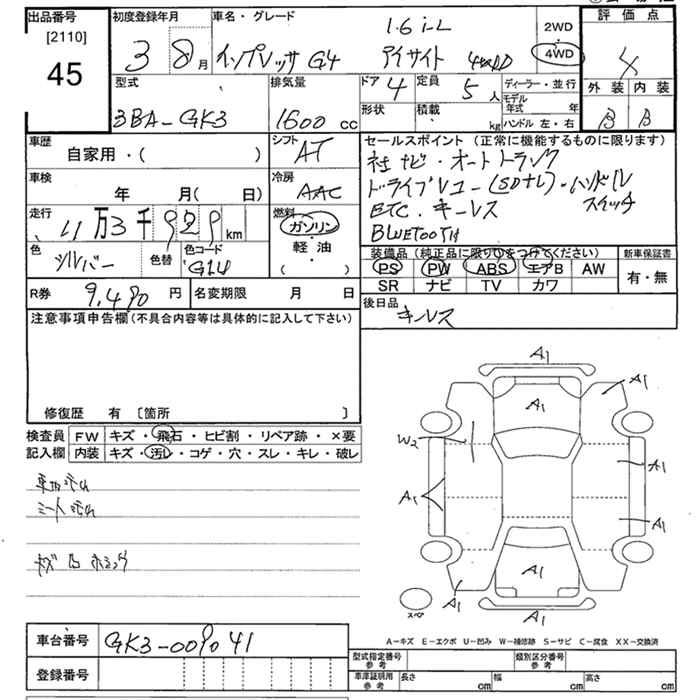 出品番号
[2110]
45
初度登録年月
3 8月
車名・グレード
1.6 i-L
インプレッサ G4 アイサイト 4WD
2WD
4WD
評価点
4
外装 内装
B B
型式
3BA-GK3
排気量
1600 cc
ドア 4
定員 5人
形状
積載 kg
ディーラー・並行
モデル年式 年
ハンドル 左・右
車歴
自家用・( )
シフト
AT
車検
年 月( 日)
冷房
AAC
走行
11万3千929km
燃料
ガソリン
軽油
( ・ )
色
シルバー
色替
色コード
G1U
R券 9,490円
名変期限 月 日
セールスポイント(正常に機能するものに限ります)
社ナビ・オートトラック
ETC・キーレス
スイッチ
BLUETOOTH
装備品(純正品に限り○をつけてください)
PS PW ABS エアB AW
SR ナビ TV カワ
新車保証書
有・無
後日品
キーレス
注意事項申告欄(不具合内容等は具体的に記入して下さい)
修復歴 有 [箇所 ]
検査員記入欄
FW キズ・飛石・ヒビ割・リペア跡・×要
内装 キズ・汚レ・コゲ・穴・スレ・キレ・破レ
シート汚れ
A1
A1
A1
W2
A1
A1
A1
A1
A1
スペア
A1
A-キズ E-エクボ U-凹み W-補修跡 S-サビ C-腐食 XX-交換済
車台番号 GK3-009041
登録番号
型式指定番号 参考
類別区分番号 参考
車庫証明用 参考
長さ cm
幅 cm
高さ cm